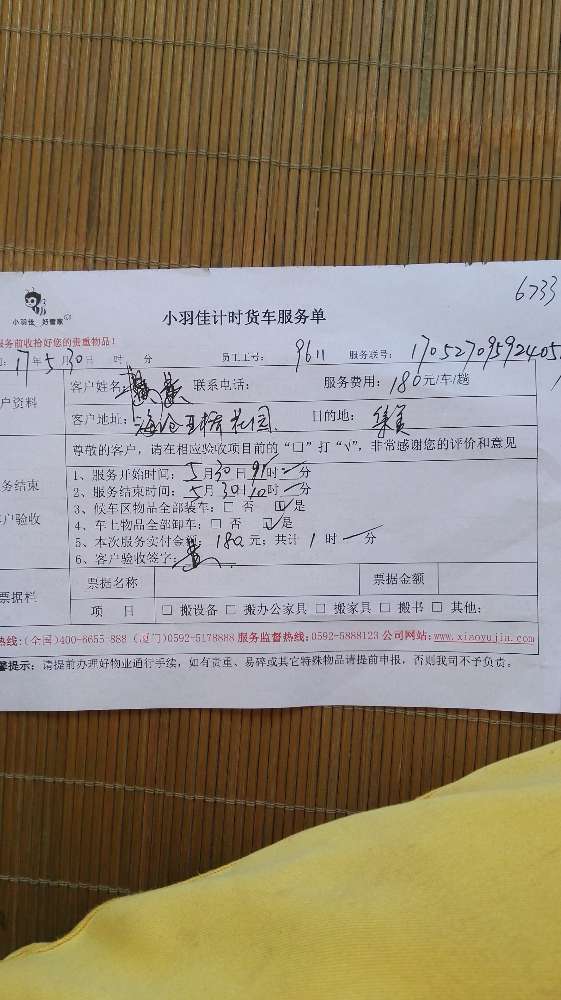 6733
小羽佳 好管家
小羽佳计时货车服务单
服务前收拾好您的贵重物品!
17年5月30日 时 分 员工工号: 9611 服务联号: 17052709592405
户资料
客户姓名: 联系电话: 服务费用: 180元/车/趟
客户地址: 海沧 花园 目的地: 集美
尊敬的客户,请在相应验收项目前的“□”打“√”,非常感谢您的评价和意见
务结束
户验收
1、服务开始时间: 5月30日9时 分
2、服务结束时间: 5月30日10时 分
3、候车区物品全部装车: □ 否 ☑是
4、车上物品全部卸车: □ 否 ☑是
5、本次服务实付金额: 180元; 共计 1 时 分
6、客户验收签字:
票据栏
票据名称 票据金额
项 目 □ 搬设备 □ 搬办公家具 □ 搬家具 □ 搬书 □ 其他:
热线:(全国)400-6655-888 (厦门)0592-5178888 服务监督热线:0592-5888123 公司网站:www.xiaoyujia.com
馨提示: 请提前办理好物业通行手续,如有贵重、易碎或其它特殊物品请提前申报,否则我司不予负责。